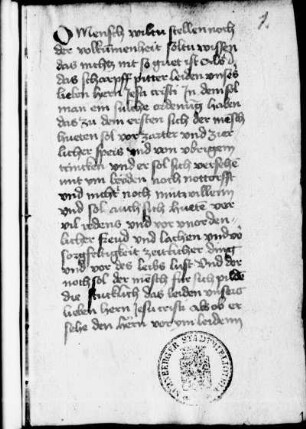 1.
O Mensch wiltu stellen noch
der volkumenheit soltu wissen
das nichtz mit so guet ist Als
das scharpff pitter leiden unsers
lieben hern Jesu cristi In dem sol
man ein sulche ordenung haben
das zu dem ersten sich der mesch
hueten sol vor zarter und zier
licher speis und von ubrigem
trincken und er sol sich versehe
mit noch nottorfft
und nicht noch mutwillenn
und sol auch sich huete vor
vil redens und vor unorden
licher freud und lachen und vo
sorgfeltigkeit zeitlicher ding
und vor des leibs lust Und dor
noch sol der mesch fur sich
die stucklich das leiden unsers
lieben hern Jesu cristi als ob er
sehe den hern vor ym leidenn
STADTBIBLIOTHEK